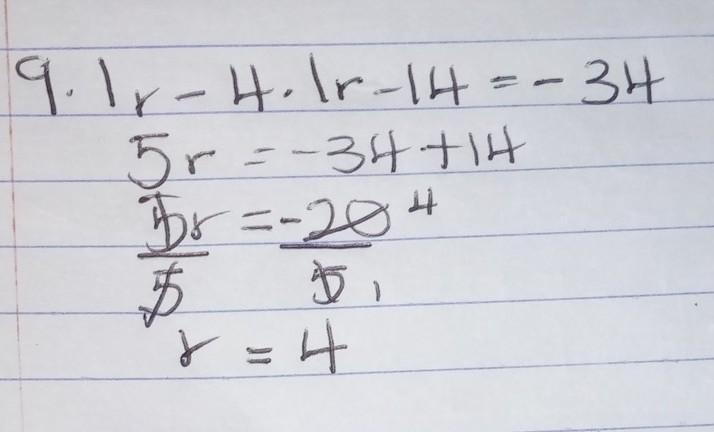 9.1r - 4.1r - 14 = - 34
5r = -34 + 14
5r = -20 4
5 5 1
r = 4